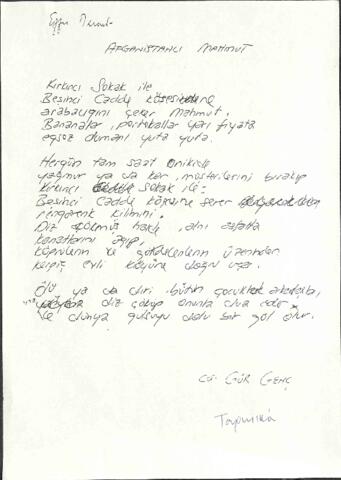 AFGANİSTANLI MAHMUT
Kırkıncı Sokak ile
Beşinci Cadde köşesine
arabacığını çeker Mahmut.
Bananalar, portokallar yarı fiyata
egsoz dumanı yuta yuta.
Hergün tam saat onikide
yağmur ya da kar, müşterilerini bırakıp
Kırkıncı Sokak ile
Beşinci Cadde köşesine serer
rengarenk kilimini.
Diz çökmüş halde, alnı asfalta
kanatlarını açıp,
köprülerin ve gökdelenlerin üzerinden
kerpiç evli köyüne doğru uçar.
Ölü ya da diri bütün çocukluk arkadaşları,
diz çöküp onunla dua eder
ve dünya gülsuyu dolu bir göl olur.
GÜR GENÇ